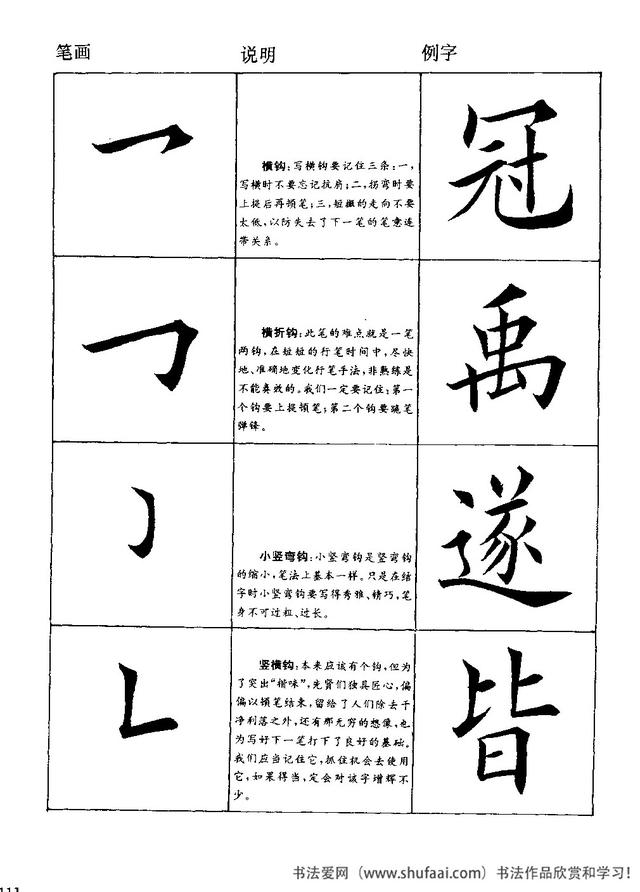 笔画 说明 例字
横钩:写横钩要记住三条:一,
写横时不要忘记抗肩;二,拐弯时要
上提后再顿笔;三,短撇的走向不要
太低,以防失去了下一笔的笔意连
带关系。
冠
横折钩:此笔的难点就是一笔
两钩,在短短的行笔时间中,尽快
地、准确地变化行笔手法,非熟练是
不能奏效的。我们一定要记住:第一
个钩要上提顿笔;第二个钩要跪笔
弹锋。
禹
小竖弯钩:小竖弯钩是竖弯钩
的缩小,笔法上基本一样。只是在结
字时小竖弯钩要写得秀雅、精巧,笔
身不可过粗、过长。
遂
竖横钩:本来应该有个钩,但为
了突出“楷味”,先贤们独具匠心,偏
偏以顿笔结束,留给了人们除去干
净利落之外,还有那无穷的想像,也
为写好下一笔打下了良好的基础。
我们应当记住它,抓住机会去使用
它,如果得当,定会对该字增辉不
少。
皆
书法爱网(www.shufaai.com)书法作品欣赏和学习!